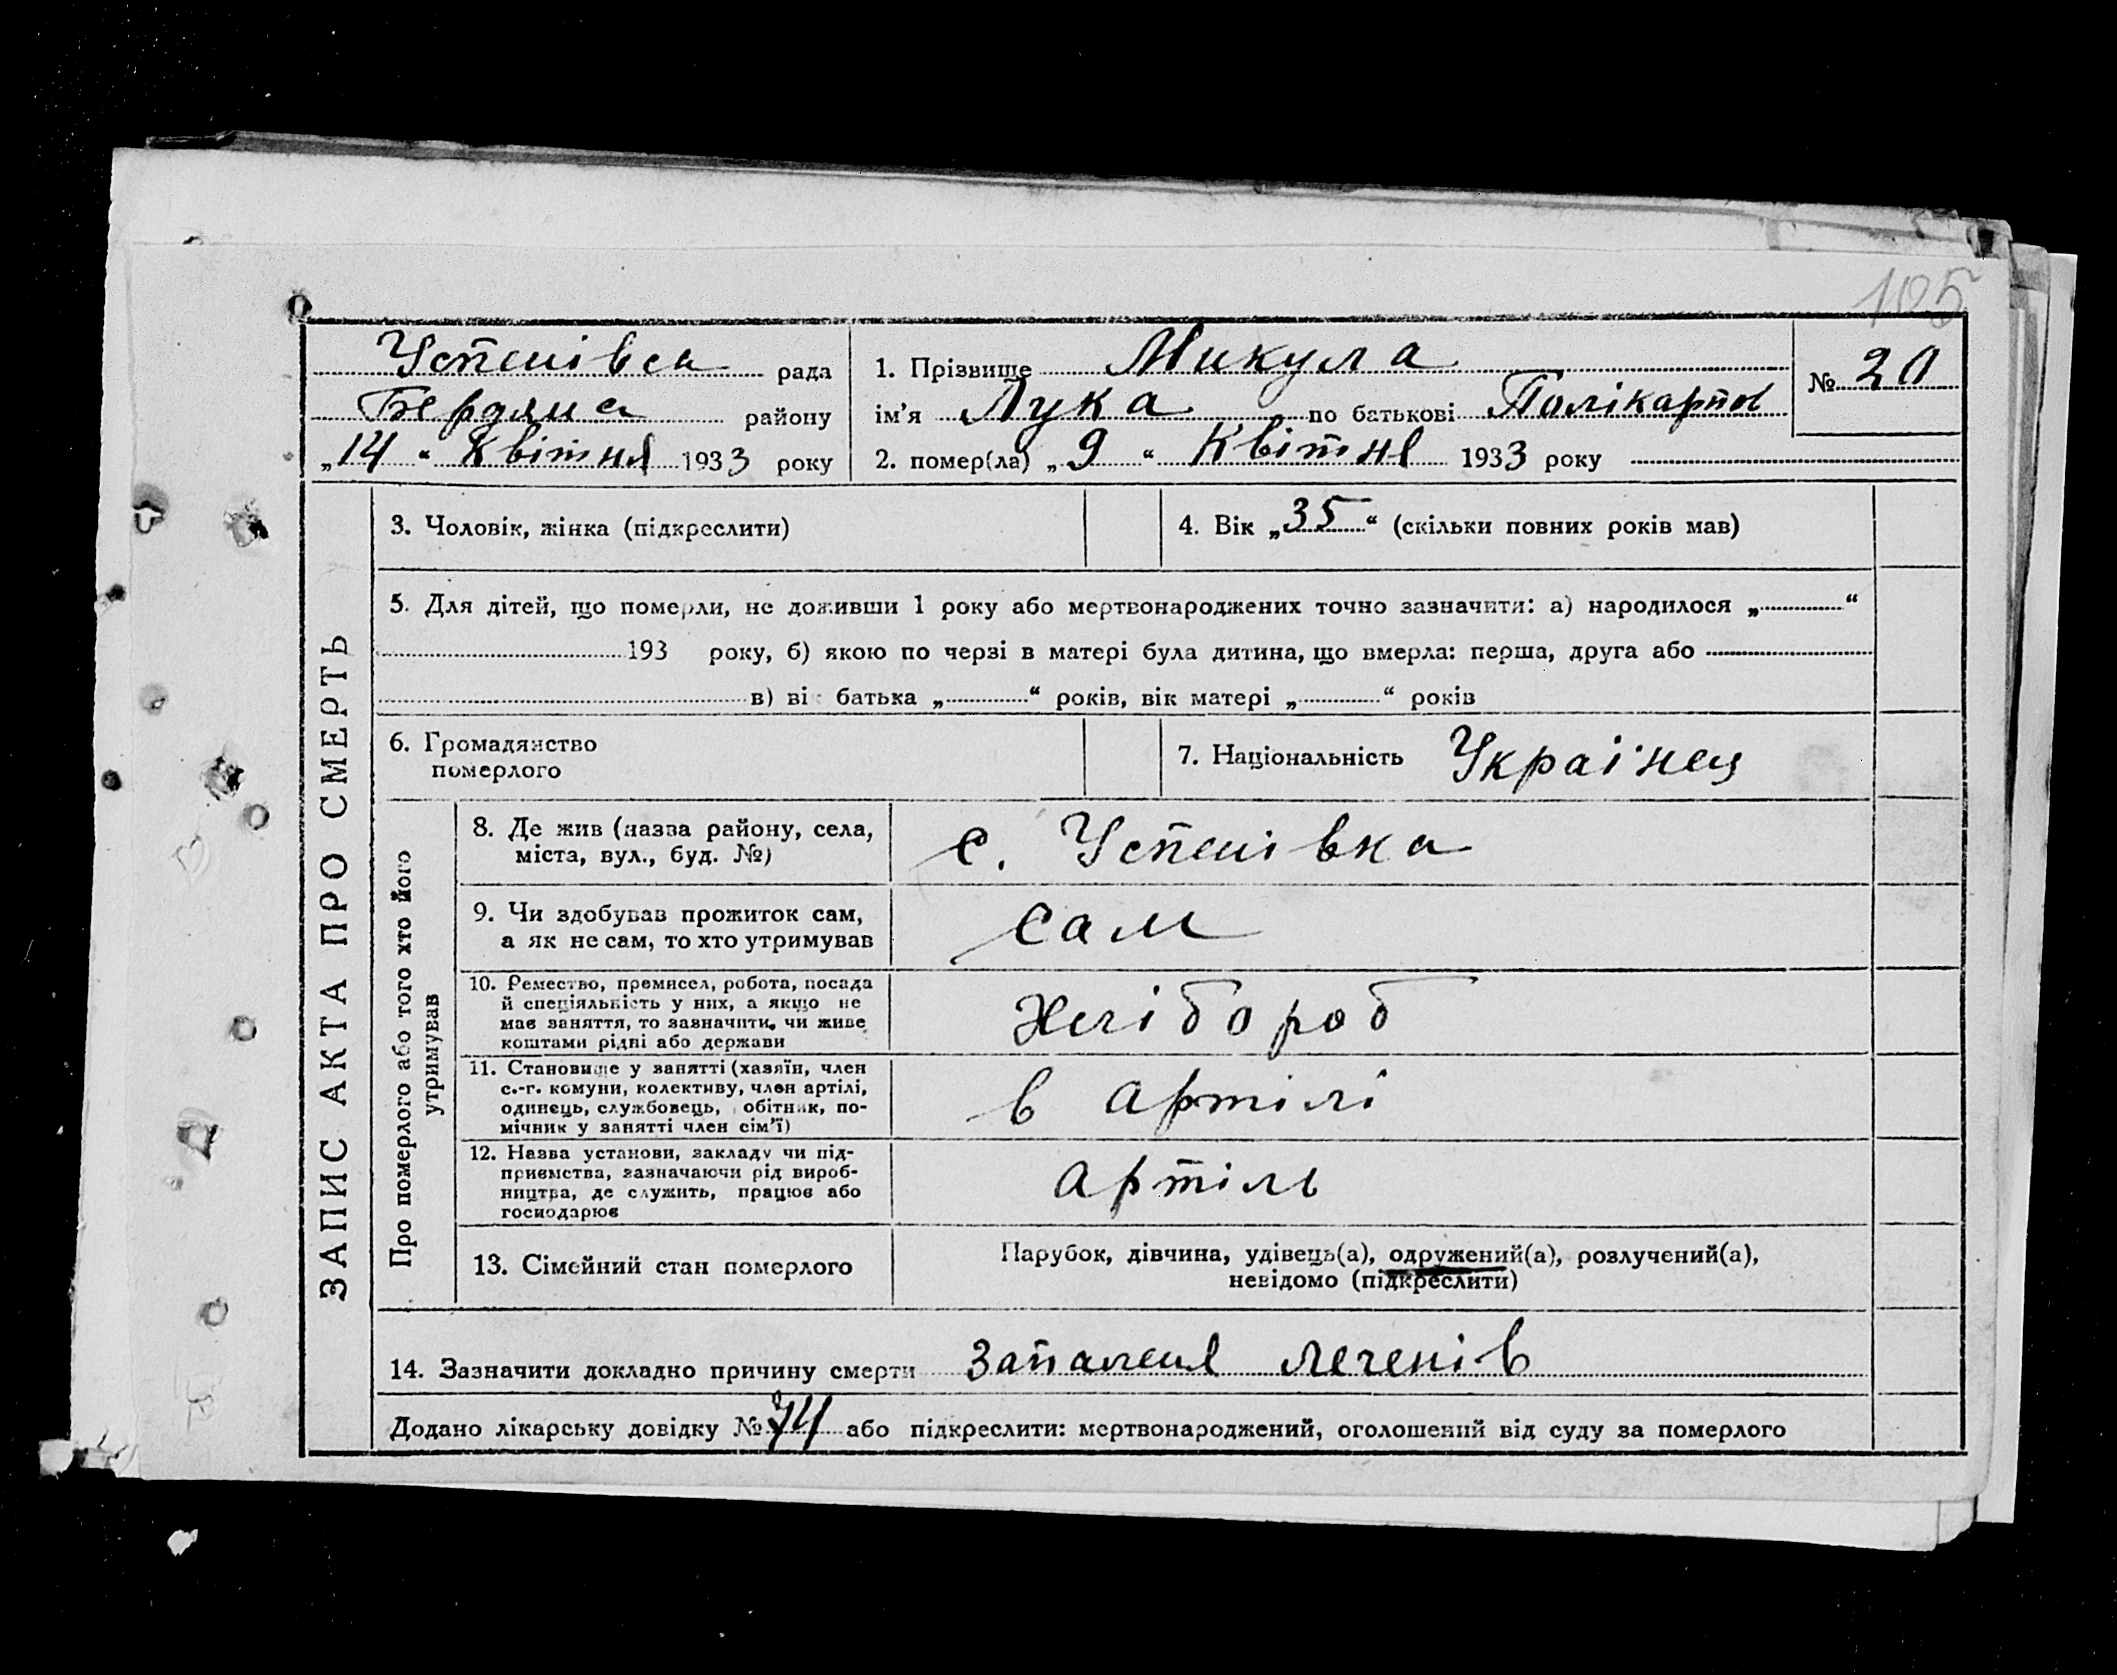 105
Успенівса рада
Бердянс району
„14“ Квітня 1933 року
1. Прізвище Микула
ім'я Лука по батькові Полікарпов
2. помер(ла) „9“ Квітня 1933 року
№ 20
ЗАПИС АКТА ПРО СМЕРТЬ
3. Чоловік, жінка (підкреслити)
4. Вік „35“ (скільки повних років мав)
5. Для дітей, що померли, не доживши 1 року або мертвонароджених точно зазначити: а) народилося „ “
193 року, б) якою по черзі в матері була дитина, що вмерла: перша, друга або
в) вік батька „ “ років, вік матері „ “ років
6. Громадянство
померлого
7. Національність Українец
Про померлого або того хто його
утримував
8. Де жив (назва району, села,
міста, вул., буд. №)
с. Успенівка
9. Чи здобував прожиток сам,
а як не сам, то хто утримував
сам
10. Ремество, премисел, робота, посада
й спеціяльність у них, а якщо не
має заняття, то зазначити, чи живе
коштами рідні або держави
Хлібороб
11. Становище у занятті (хазяїн, член
с.-г. комуни, колективу, член артілі,
одинець, службовець, робітник, по-
мічник у занятті член сім'ї)
в артілі
12. Назва установи, закладу чи під-
приємства, зазначаючи рід вироб-
ництва, де служить, працює або
господарює
артіль
13. Сімейний стан померлого
Парубок, дівчина, удівець(а), одружений(а), розлучений(а),
невідомо (підкреслити)
14. Зазначити докладно причину смерти запаленя легенів
Додано лікарську довідку № 74 або підкреслити: мертвонароджений, оголошений від суду за померлого